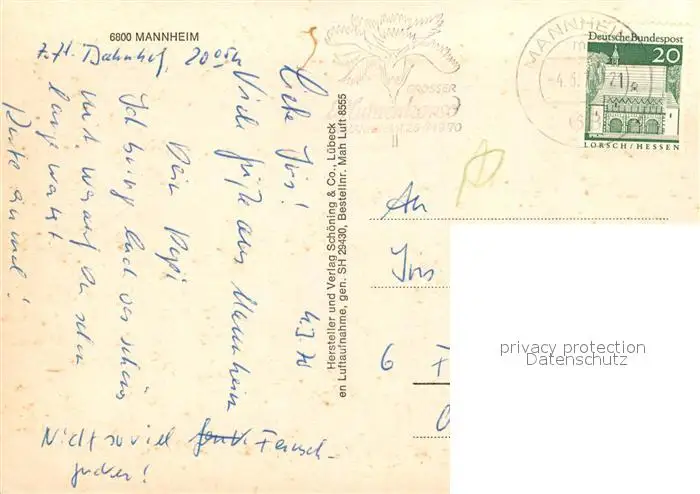 6800 MANNHEIM
z. Zt. Bahnhof 20 00 Uhr
4.5.70
Liebe Iris!
Viele Grüße aus Mannheim
Dein Papi
Ich bring Euch was schönes
mit, worauf Du schon
lange wartest.
Rufe an mal!
Nicht so viel Fernseh-
gucken!
Hersteller und Verlag Schöning & Co., Lübeck
en Luftaufnahme, gen. SH 29430, Bestellnr. Mah Luft 8555
GROSSER
Blumenkorso
1970
MANNHEIM
-4.5. 21
Deutsche Bundespost
20
LORSCH/HESSEN
An
Iris
6 F
privacy protection
Datenschutz